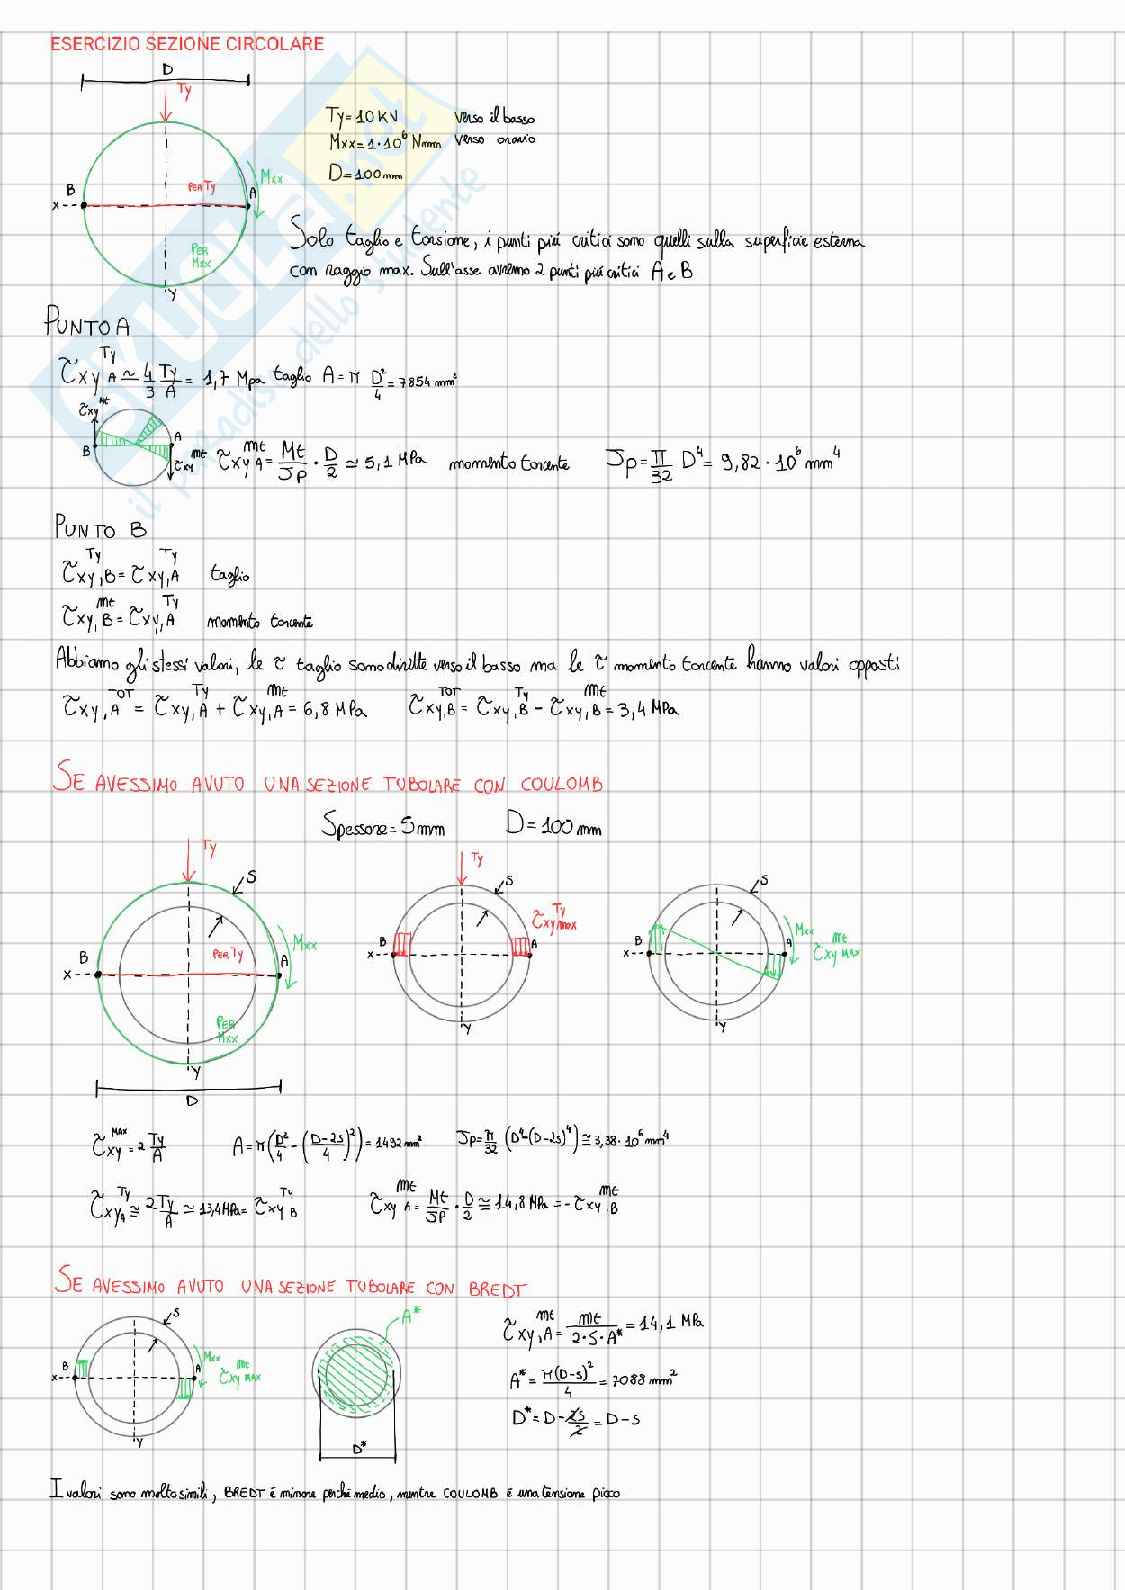 ESERCIZIO SEZIONE CIRCOLARE
D
Ty
Ty=10 KN verso il basso
Mxx=1·10⁶ Nmm verso orario
D=100mm
B PER Ty A Mxx
x
PER Mxx
Y
Solo taglio e torsione, i punti più critici sono quelli sulla superficie esterna
con raggio max. Sull'asse avremo 2 punti più critici A e B
il paradiso dello studente
PUNTO A
τxy,A^Ty ≃ 4/3 Ty/A = 1,7 Mpa taglio A=π D²/4 = 7854 mm²
τxy^Mt
B A
τxy^Mt
τxy,A^Mt = Mt/Jp · D/2 ≃ 5,1 MPa momento torcente Jp=π/32 D⁴= 9,82·10⁶ mm⁴
PUNTO B
τxy,B^Ty = τxy,A^Ty taglio
τxy,B^Mt = τxy,A^Ty momento torcente
Abbiamo gli stessi valori, le τ taglio sono dirette verso il basso ma le τ momento torcente hanno valori opposti
τxy,A^TOT = τxy,A^Ty + τxy,A^Mt = 6,8 MPa τxy,B^TOT = τxy,B^Ty - τxy,B^Mt = 3,4 MPa
SE AVESSIMO AVUTO UNA SEZIONE TUBOLARE CON COULOMB
Spessore=5mm D=100mm
Ty S
B PER Ty A Mxx
x
PER Mxx
Y
D
Ty S
τxy max^Ty
B A
x
Y
S
Mxx
B A
τxy MAX^Mt
x
Y
τxy^MAX = 2 Ty/A A=π(D²/4 - (D-2s)²/4) = 1432 mm² Jp=π/32 (D⁴-(D-2s)⁴) ≅ 3,38·10⁶ mm⁴
τxy A^Ty ≅ 2Ty/A ≃ 13,4MPa = τxy B^Ty τxy A^Mt = Mt/Jp · D/2 ≅ 14,8 MPa = -τxy B^Mt
SE AVESSIMO AVUTO UNA SEZIONE TUBOLARE CON BREDT
S
B A Mxx
τxy MAX^Mt
x
Y
A*
D*
τxy,A^Mt = Mt/2·S·A* = 14,1 MPa
A* = π(D-s)²/4 = 7088 mm²
D* = D-2s/2 = D-s
I valori sono molto simili, BREDT è minore perché medio, mentre COULOMB è una tensione picco